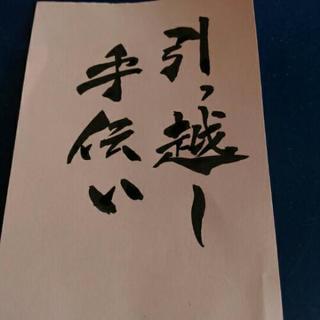 引っ越し
手伝い